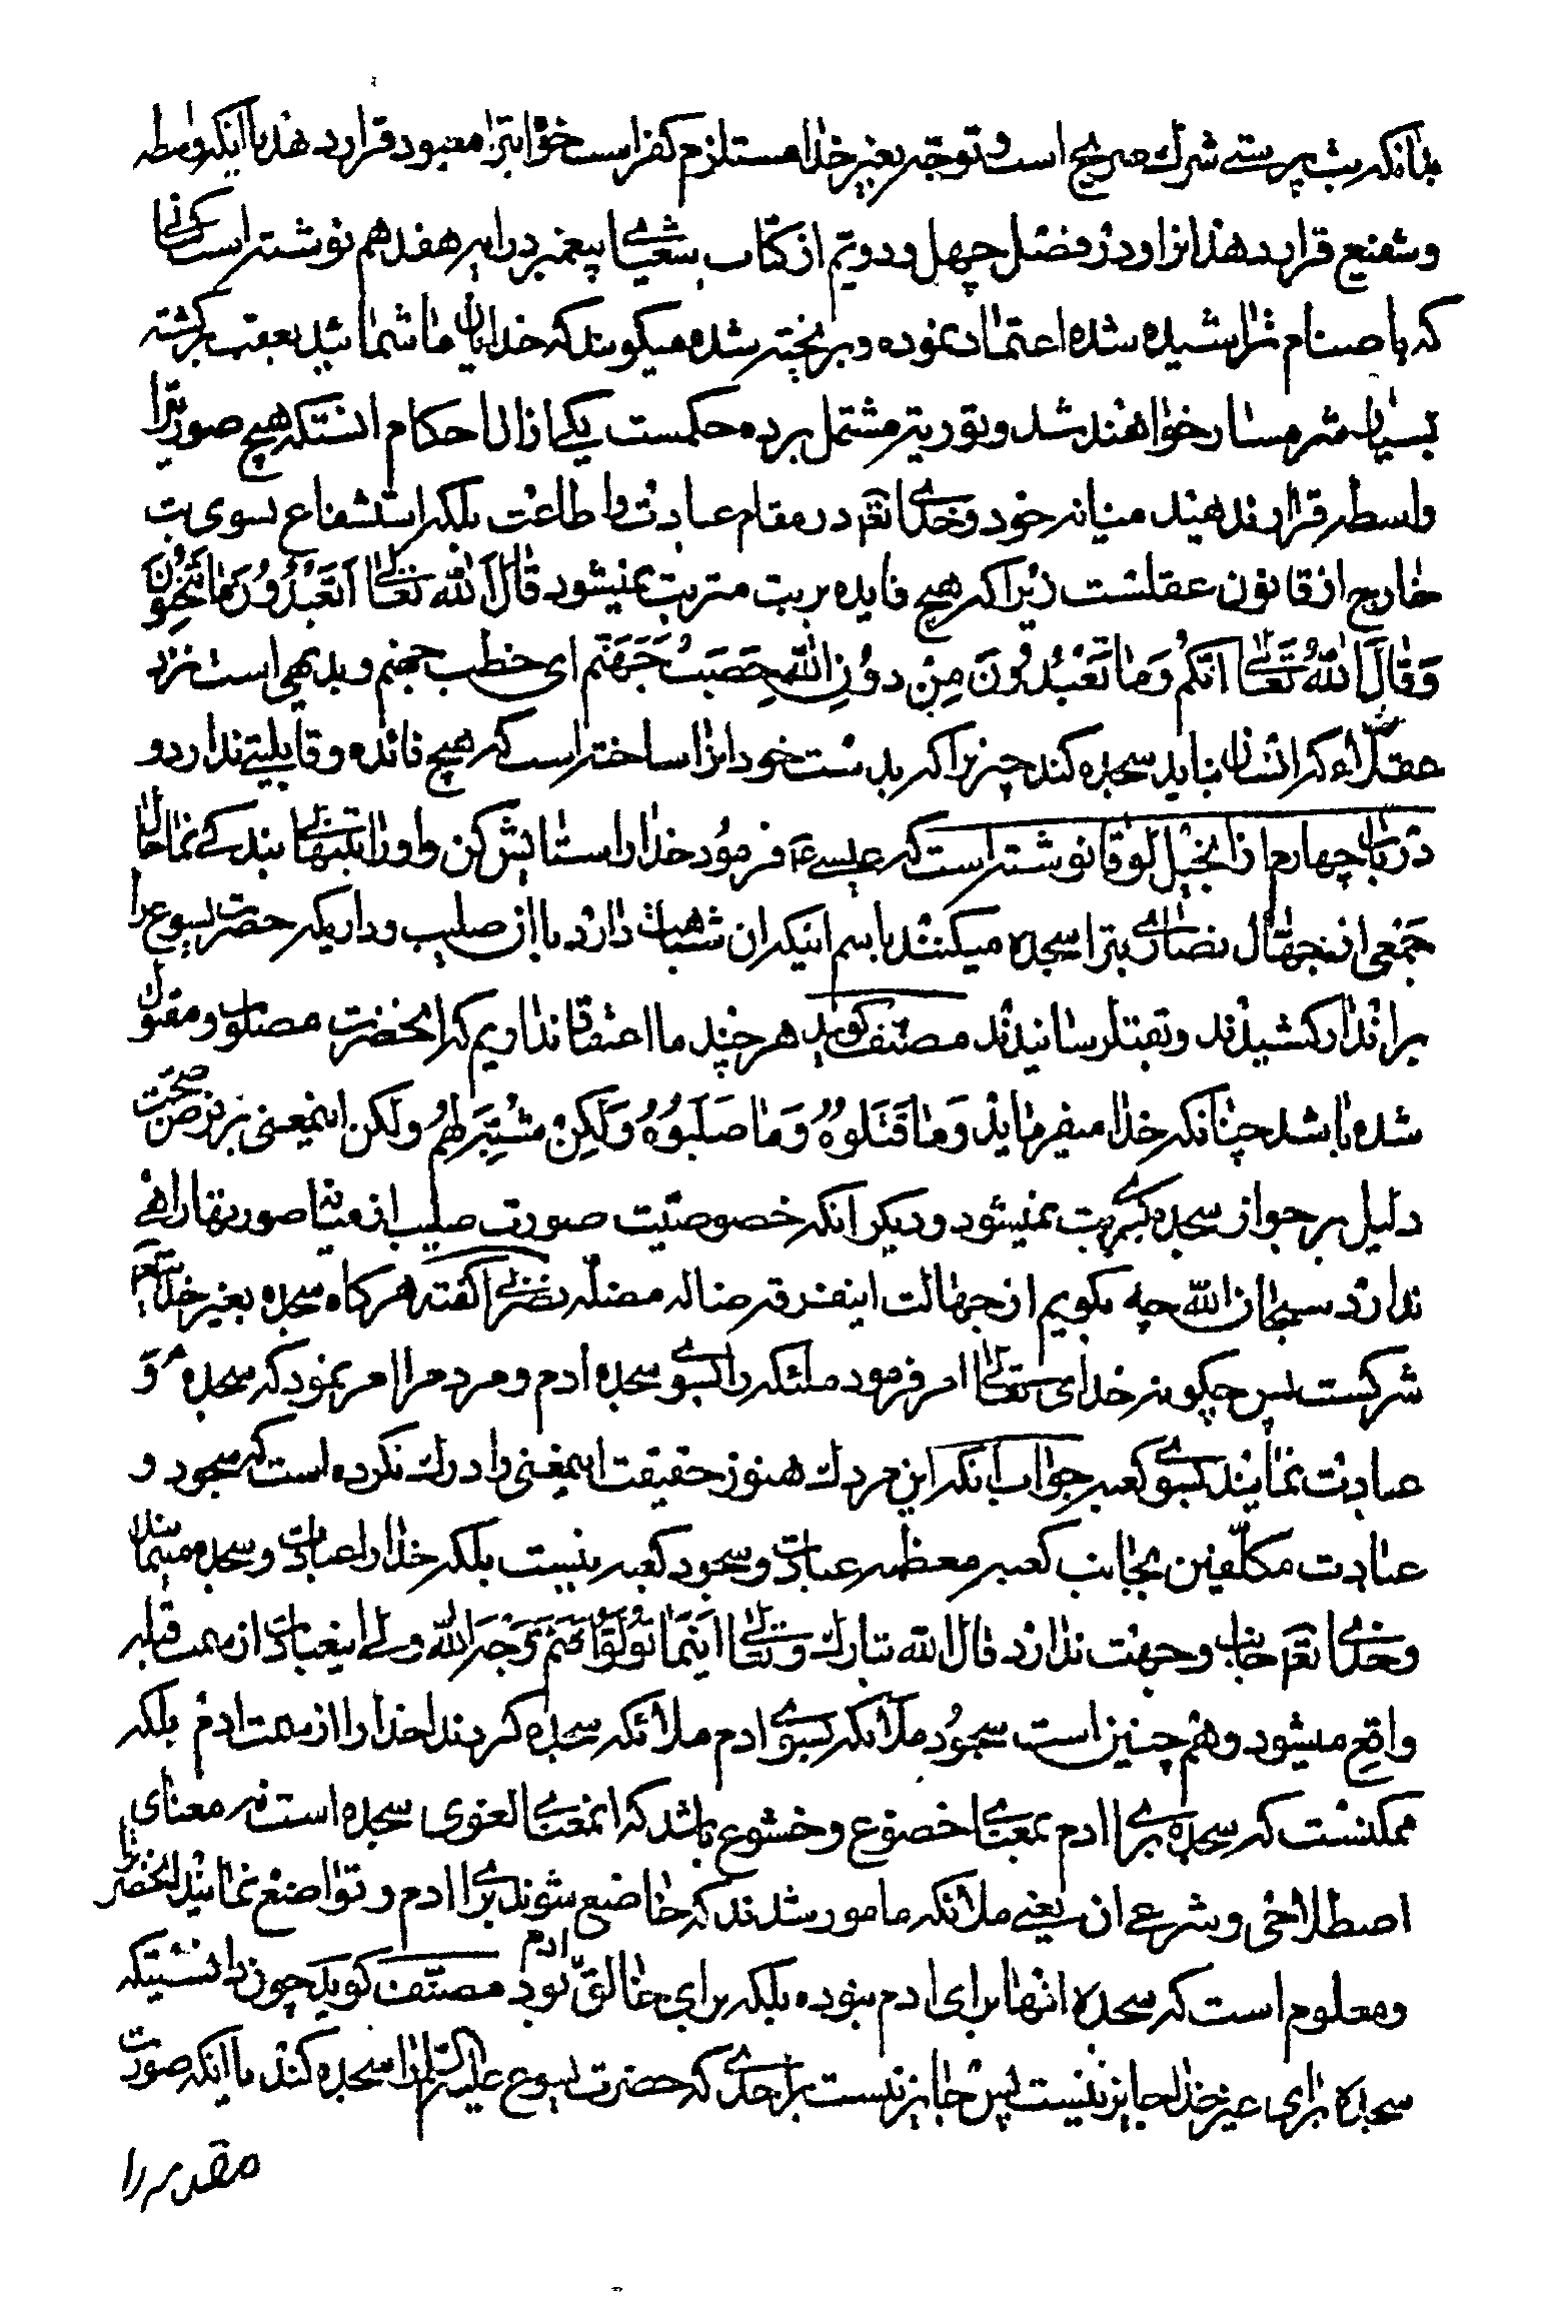 بدانکه بت پرستی شرک صریح است و توجه بغیر خدا مستلزم کفر است خواه بترا معبود قرار دهد یا اینکه واسطه
و شفیع قرار دهد انرا و در فصل چهل و دویم از کتاب شعیای پیغمبر در ایه هفدهم نوشته است کسانی
که باصنام تراشیده شده اعتماد نموده و بریخته شده میکویند که خدایان ما شمائید بعقب برکشته
بسیار شرمسار خواهند شد و توریة مشتمل بر ده حکمست یکی از ان احکام انستکه هیچ صورتیرا
واسطه قرار ندهید میانه خود و خدای تعّه در مقام عبادت و اطاعت بلکه استشفاع بسوی بت
خارج از قانون عقلست زیرا که هیچ فایده بر بت مترتب نمیشود قَالَ اللّه تَعَالٰی اَتَعْبُدُونَ مَا تَنْحِتُونَ
وَقَالَ اللّهُ تَعَالٰی انّکُم وَمَا تَعْبُدُونَ مِنْ دوُنِ اللّهِ حَصَبُ جَهَنّم ای حطب جهنم و بدیهی است نزد
عقلاء که انسان نباید سجده کند چیزیرا که بدست خود انرا ساخته است که هیچ فائده و قابلیتی ندارد و
در باب چهارم از انجیل لوقا نوشته است که عیسی عَ فرمود خدا را ستایش کن و او را بتنهائی بندکی نما حال
جمعی از جهّال نصاری بترا سجده میکنند باسم اینکه ان شباهت دارد با ان صلیب و داریکه حضرت یسوع را
بر ان دار کشیدند و بقتل رسانیدند مصنّف کوید هر چند ما اعتقاد نداریم که انحضرت مصلوب و مقتول
شده باشد چنانکه خدا میفرماید وَمَا قَتَلوُهُ وَمَا صَلَبوُهُ وَلَکِنْ شُبِّهَ لَهُم ولکن اینمعنی بر فرض صحّت
دلیل بر جواز سجده کردن بت نمیشود و دیکر انکه خصوصیّت صورت صلیب از میان صورتها راهی
ندارد سبحان اللّه چه بکویم از جهالت اینفرقه ضاله مضلّه نصرانی کفته هر کاه سجده بغیر خدای تعّه
شرکست پس چکونه خدای تعالٰی امر فرمود ملئکه را بسوی سجده ادم و مردم را امر نمود که سجده و
عبادت نمایند بسوی کعبه جواب انکه این مردک هنوز حقیقت اینمعنی را درک نکرده است که سجود و
عبادت مکلّفین بجانب کعبه معظمه عبادت و سجود کعبه نیست بلکه خدا را عبادت و سجده مینمایند
و خدای تعّه جانب و جهت ندارد قال اللّه تبارک و تعالٰی اینَمَا تُوَلّوُا فَثَمّ وَجْهُ اللّه ولی اینعبادت از سمت قبله
واقع میشود و هم چنین است سجوُد ملائکه بسوی ادم ملائکه سجده کردند خدا را از سمت ادم بلکه
ممکنست که سجده برای ادم بمعنای خضوع و خشوع باشد که انمعنای لغوی سجده است نه معنای
اصطلاحی و شرعی ان یعنی ملائکه مامور شدند که خاضع شوند برای ادم و تواضع نمایند انحضرترا
و معلوم است که سجده انها برای ادم نبوده بلکه برای خالق ادم بود مصنّف کوید چون دانستیکه
سجده برای غیر خدا جایز نیست پس جایز نیست برای احدی که حضرت یسوع علیه السّلام را سجده کند با اینکه صورت
مقدسه را